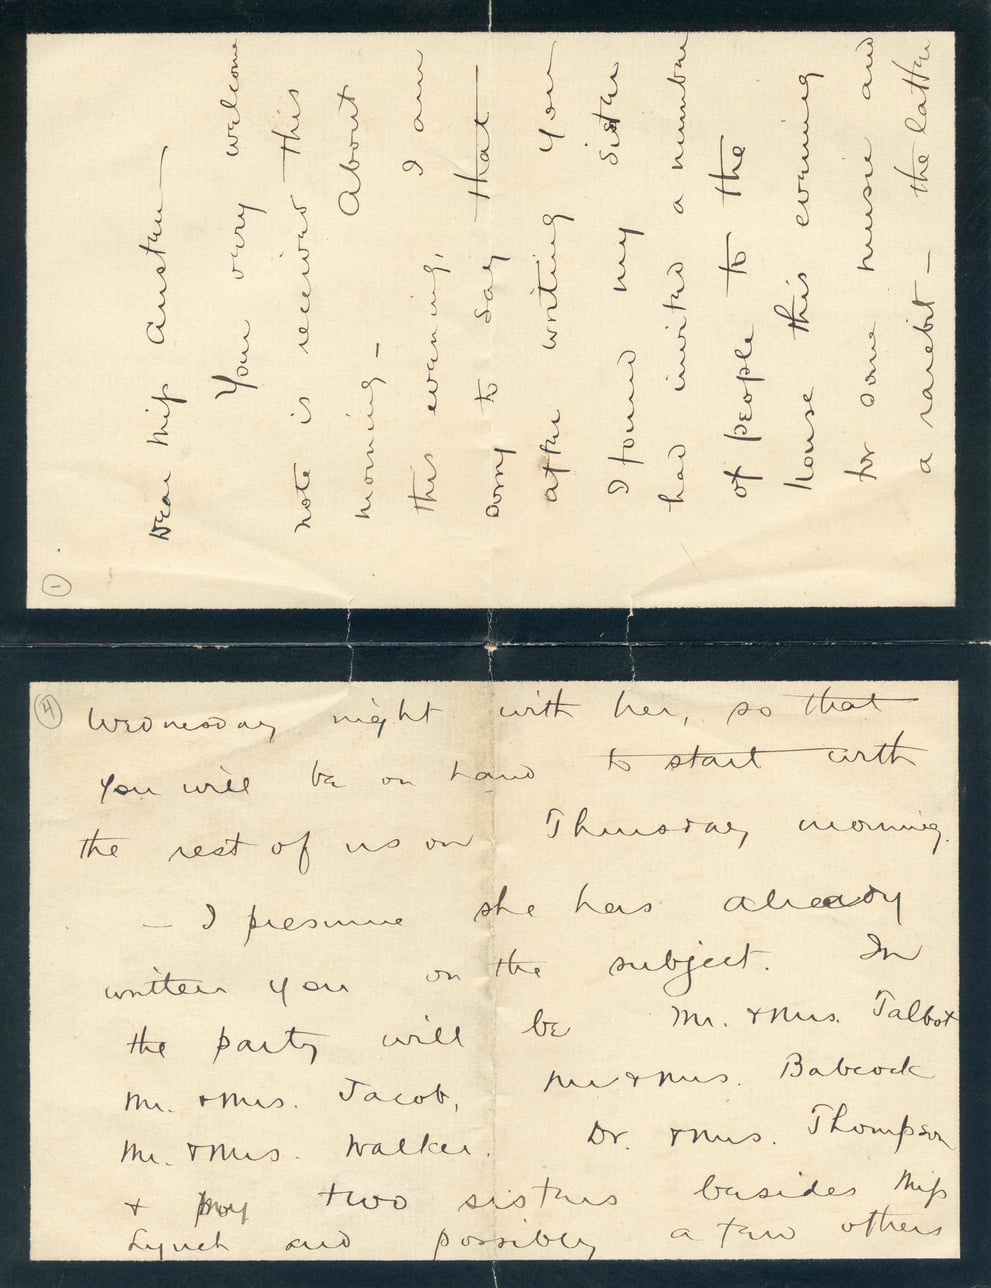 1
Dear Miss Austen—
Your very welcome
note is received this
morning — About
this evening, I am
sorry to say that
after writing you
I found my sister
had invited a number
of people to the
house this evening
for some music and
a rarebit — the latter
4
Wednesday night with her, so that
you will be on hand to start with
the rest of us on Thursday morning.
— I presume she has already
written you on the subject. In
the party will be Mr. & Mrs. Talbot
Mr. & Mrs. Jacob, Mr & Mrs. Babcock
Mr. & Mrs. Walker. Dr. & Mrs. Thompson
& my two sisters besides Miss
Lynch and possibly a few others